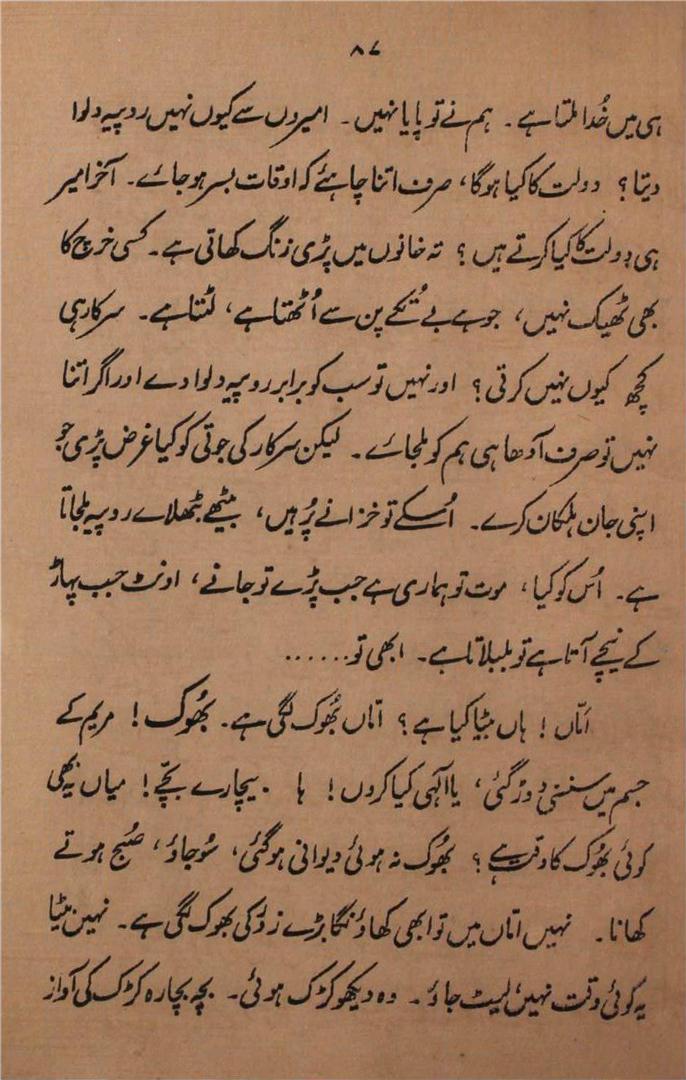 ۸۷
ہی میں خُدا ملتا ہے۔ ہم نے تو پایا نہیں۔ امیروں سے کیوں نہیں روپیہ دلوا
دیتا؟ دولت کا کیا ہوگا، صرف اتنا چاہئے کہ اوقات بسر ہو جائے۔ آخر امیر
ہی دولت کا کیا کرتے ہیں؟ تہ خانوں میں پڑی زنگ کھاتی ہے۔ کسی خرچ کا
بھی ٹھیک نہیں، جو ہے بے تُکے پن سے اُٹھتا ہے، لٹتا ہے۔ سرکار ہی
کچھ کیوں نہیں کرتی؟ اور نہیں تو سب کو برابر روپیہ دلوا دے اور اگر اتنا
نہیں تو صرف آدھا ہی ہم کو ملجائے۔ لیکن سرکار کی جوتی کو کیا غرض پڑی جو
اپنی جان ہلکان کرے۔ اُسکے تو خزانے پُر ہیں، بیٹھے بٹھلائے روپیہ ملجاتا
ہے۔ اُس کو کیا، موت تو ہماری ہے جب پڑے تو جانے، اونٹ جب پہاڑ
کے نیچے آتا ہے تو بلبلاتا ہے۔ ابھی تو......
امّاں! ہاں بیٹا کیا ہے؟ امّاں بھُوک لگی ہے۔ بھُوک! مریم کے
جسم میں سنسنی دوڑ گئی، یا الٰہی کیا کروں! ہا۔ بیچارے بچّے! میاں یہ بھی
کوئی بھُوک کا وقت ہے؟ بھُوک نہ ہوئی دیوانی ہو گئی، سُو جاؤ، صُبح ہوتے
کھانا۔ نہیں امّاں میں تو ابھی کھاؤنگا بڑے زور کی بھوک لگی ہے۔ نہیں بیٹا
یہ کوئی وقت نہیں، لیٹ جاؤ۔ وہ دیکھو کڑک ہوئی۔ بچہ بچارہ کڑک کی آواز